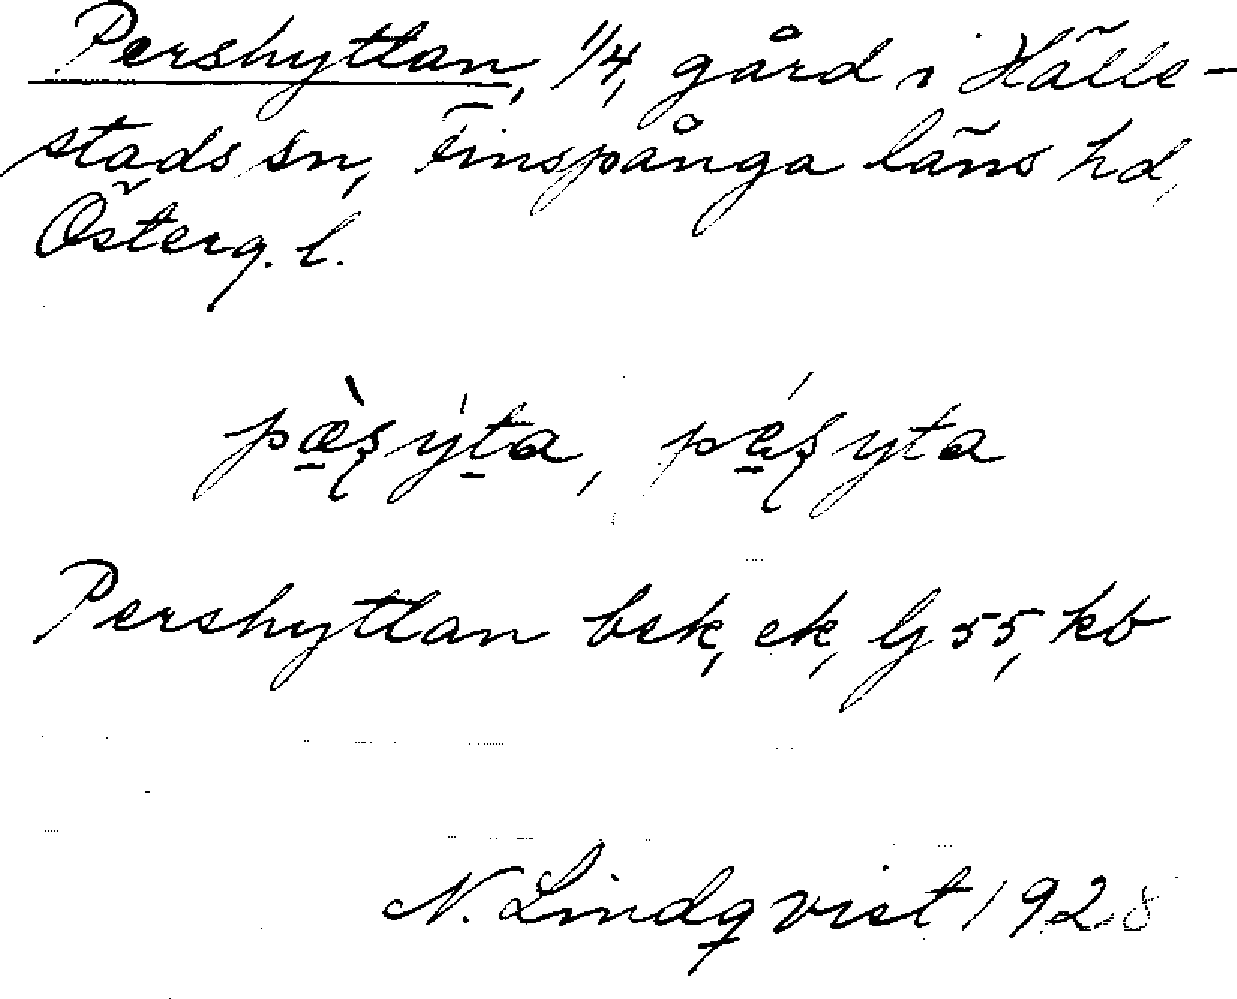 Pershyttan, 1/4, gård i Hälle-
stads sn, Finspånga läns hd,
Österg. l.
pæ̀ʂýta, pǽʂyta
Pershyttan bsk, ek, Ij 55, kb
N. Lindqvist 1928